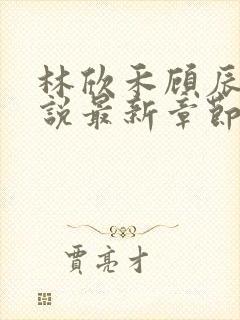 林欣禾顾辰
說最新章節
賈亮才